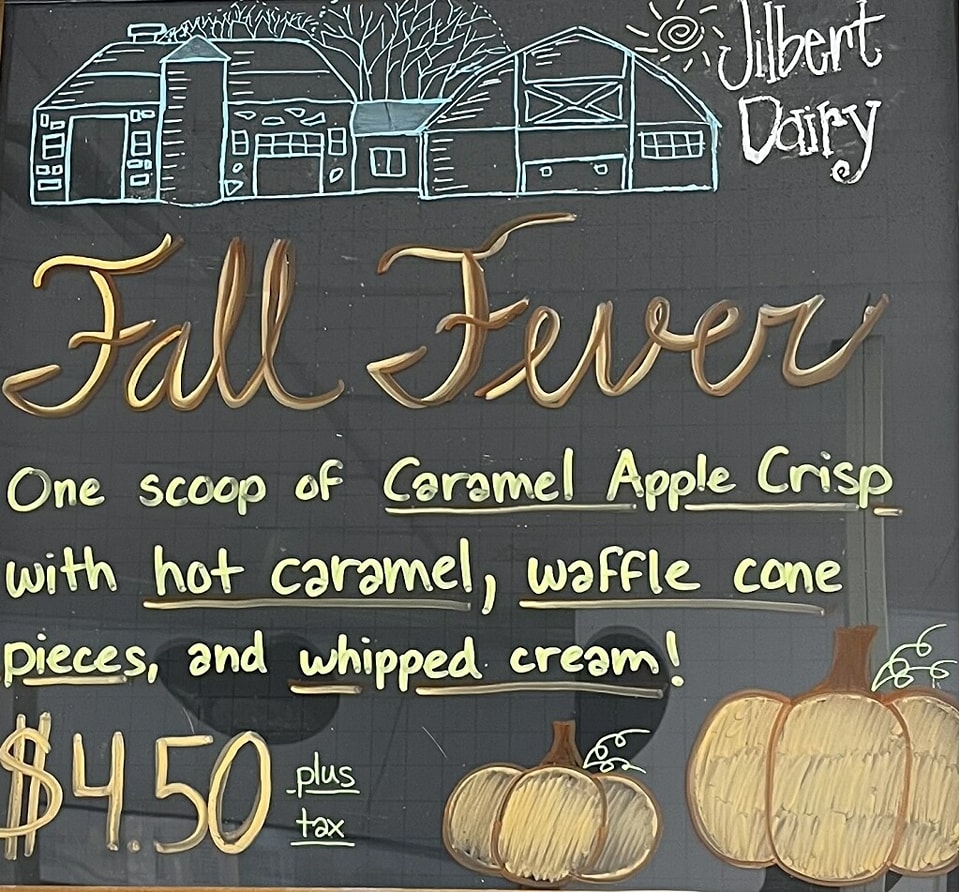 Jilbert
Dairy
Fall Fever
One scoop of Caramel Apple Crisp
with hot caramel, waffle cone
pieces, and whipped cream!
$4.50 plus
tax